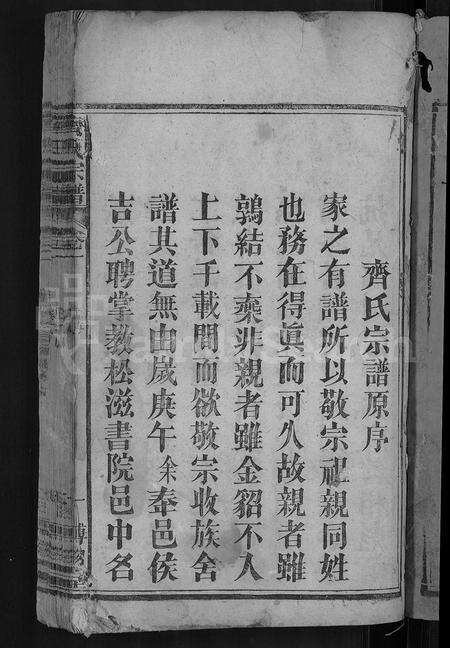 齊氏宗譜原序
家之有譜所以敬宗祀親同姓
也務在得眞而可久故親者雖
鶉結不棄非親者雖金貂不入
上下千載間而欲敬宗收族舍
譜其道無由歲庚午余奉邑侯
吉公聘掌教松滋書院邑中名
氏宗譜